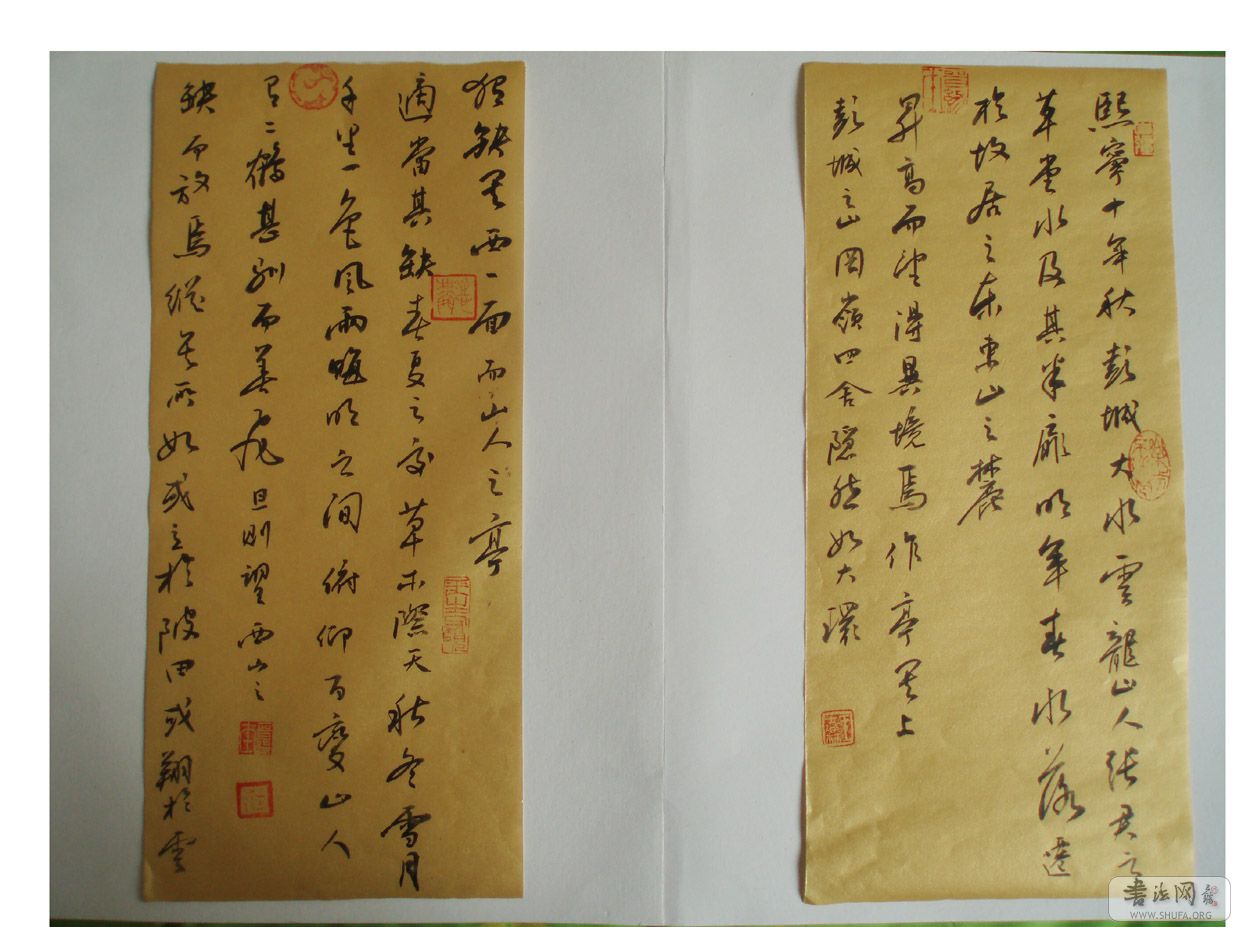 熙寧十年秋彭城大水雲龍山人張君之
草堂水及其半扉明年春水落遷
於故居之東東山之麓
昇高而望得異境焉作亭其上
彭城之山岡嶺四舍隱然如大環
独缺其西一面而山人之亭
適當其缺春夏之交草木際天秋冬雪月
千里一色風雨晦明之間俯仰百變山人
有二鶴甚馴而善飛旦則望西山之
缺而放焉縱其所如或立於陂田或翔於雲
書法网
WWW.SHUFA.ORG